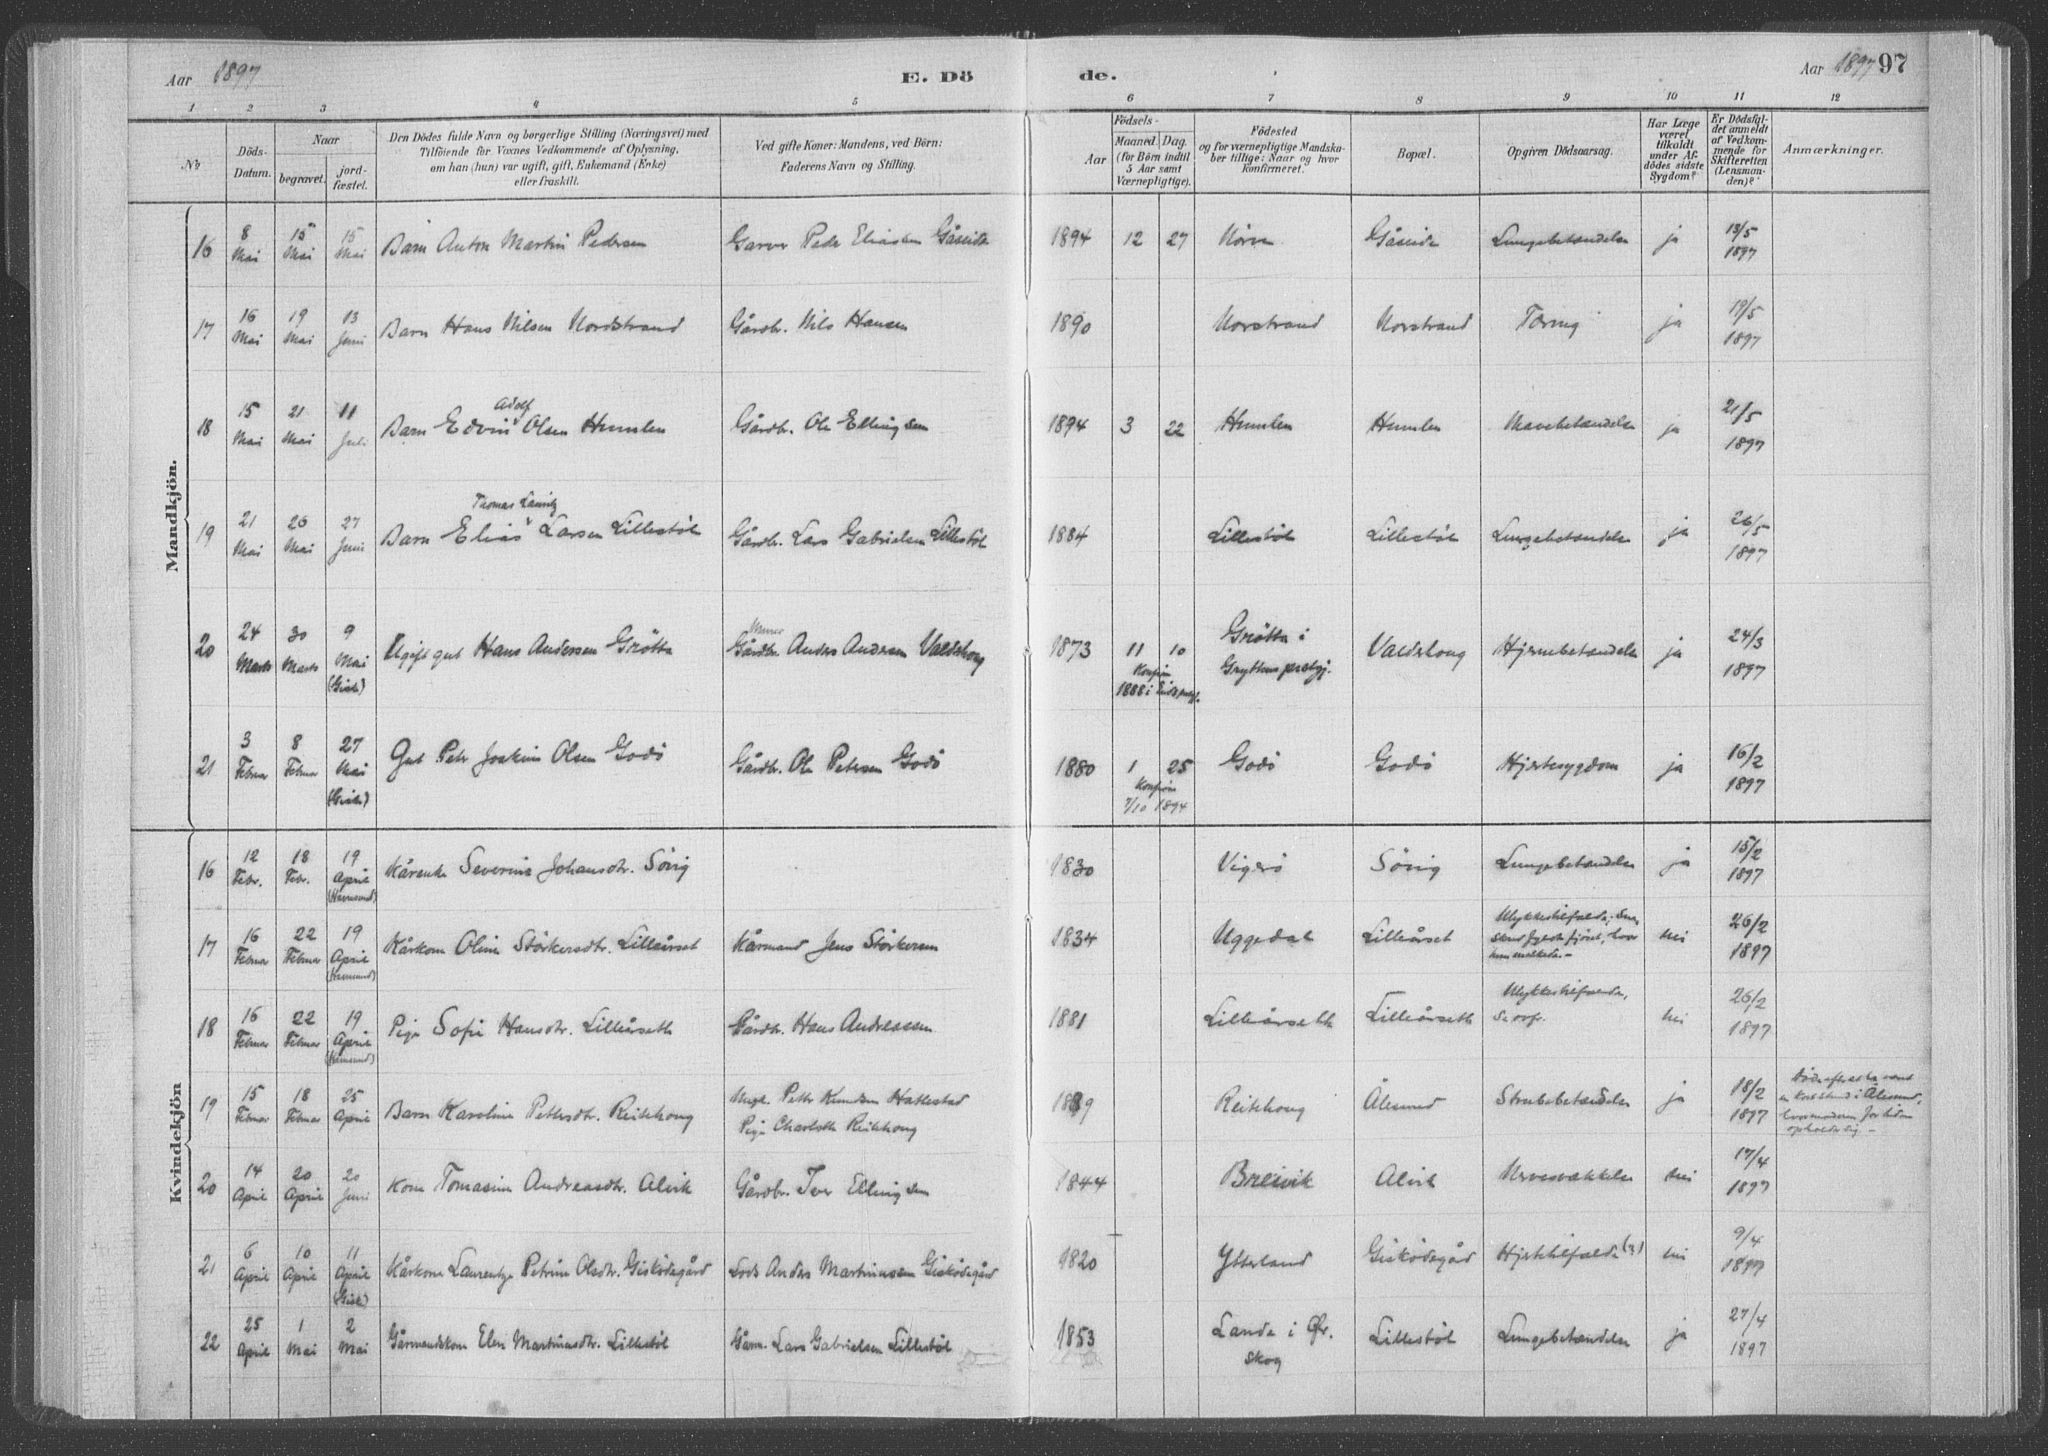 Aar 1897 E. Dö de. Aar 1897 97
1 2 3 4 5 6 7 8 9 10 11 12
No.
Döds-
Datum.
Naar
begravet.
jord-
fæstet.
Den Dödes fulde Navn og borgerlige Stilling (Næringsvei) med
Tilföiende for Voxnes Vedkommende af Oplysning,
om han (hun) var ugift, gift, Enkemand (Enke)
eller fraskilt.
Ved gifte Koner: Mandens, ved Börn:
Faderens Navn og Stilling.
Aar
Födsels-
Maaned. Dag.
(for Börn indtil
5 Aar samt
Værnepligtige).
Födested
og for værnepligtige Mandska-
ber tillige: Naar og hvor
konfirmeret.
Bopæl.
Opgiven Dödsaarsag.
Har Læge
været
tilkaldt
under Af-
dödes sidste
Sygdom?
Er Dödsfal-
det anmeldt
af Vedkom-
mende for
Skifteretten
(Lensman-
den)?
Anmærkninger.
Mandkjön.
16 8 Mai 15 Mai 15 Mai Barn Anton Martin Pedersen Garver Peder Eliassen Gåseide 1894 12 27 Nörve Gåseide Lungebetændelse ja 13/5 1897
17 16 Mai 19 Mai 13 Juni Barn Hans Nilsen Nordstrand Gårdbr. Nils Hansen 1890 Norstrand Norstrand Tæring ja 19/5 1897
Adolf
18 15 Mai 21 Mai 11 Juli Barn Edvin Olsen Humlen Gårdbr. Ole Ellingsen 1894 3 22 Humlen Humlen Mavebetændelse ja 21/5 1897
Thomas Lauritz
19 21 Mai 26 Mai 27 Juni Barn Elias Larsen Lillestöl Gårdbr. Lars Gabrielsen Lillestöl 1884 Lillestöl Lillestöl Lungebetændelse ja 26/5 1897
Murer
20 24 Marts 30 Marts 9 Mai (Giske) Ugift gut Hans Andersen Grötta Gårdbr. Anders Andersen Valdshoug 1873 11 10 Grötta i Valdshoug Hjernebetændelse ja 24/3 1897
Konfirm
1888 i Eids prstgj. Gryttens prestgj.
21 3 Februar 8 Februar 27 Mai (Giske) Gut Peter Joakim Olsen Godö Gårdbr. Ole Petersen Godö 1880 1 25 Godö Godö Hjertesygdom ja 16/2 1897
Konfirm
7/10 1894
Kvindekjön
16 12 Febr. 18 Febr. 19 April (Hamsund) Kårenke Severine Johansdtr. Sövig 1830 Vigerö Sövig Lungebetændelse ja 15/2 1897
17 16 Februar 22 Februar 19 April Kårkone Oline Störkersdtr. Lilleåset Kårmand Jens Störkersen 1834 Uggedal Lilleåset Ulykkestilfælde. nei 26/2 1897
18 16 Februar 22 Februar 19 April Pige Sofie Hansdtr. Lilleårseth Gårdbr. Hans Andreassen 1881 Lilleårseth Lilleårseth Ulykkestilfælde, nei 26/2 1897
Se ovf.
19 15 Februar 18 Februar 25 April Barn Karoline Petersdtr. Reitehoug Ungk. Petter Knudsen Hattestad Reitehoug Ålesund Strubebetændelse ja 18/2 1897 i Ålesund,
Pige Charlotte Reitehoug hvor moderen for tiden
opholder sig –
20 14 April 20 April 20 Juni Kone Tomasine Andreasdtr. Alvik Gårdbr. Iver Ellingsen 1844 Breivik Alvik Nervesvækkelse nei 17/4 1897
21 6 April 10 April 11 April (Giske) Kårkone Laurentze Petrine Olsdtr. Gisködegård Lods Anders Martinussen Gisködegård 1820 Ytterland Gisködegård Hjertetilfælde (?) nei 9/4 1897
22 25 April 1 Mai 2 Mai Gårmandskone Elen Martinusdtr. Lillestöl Gårm. Lars Gabrielsen Lillestöl 1853 Lande i Ør- Lillestöl Lungebetændelse ja 27/4 1897
skog